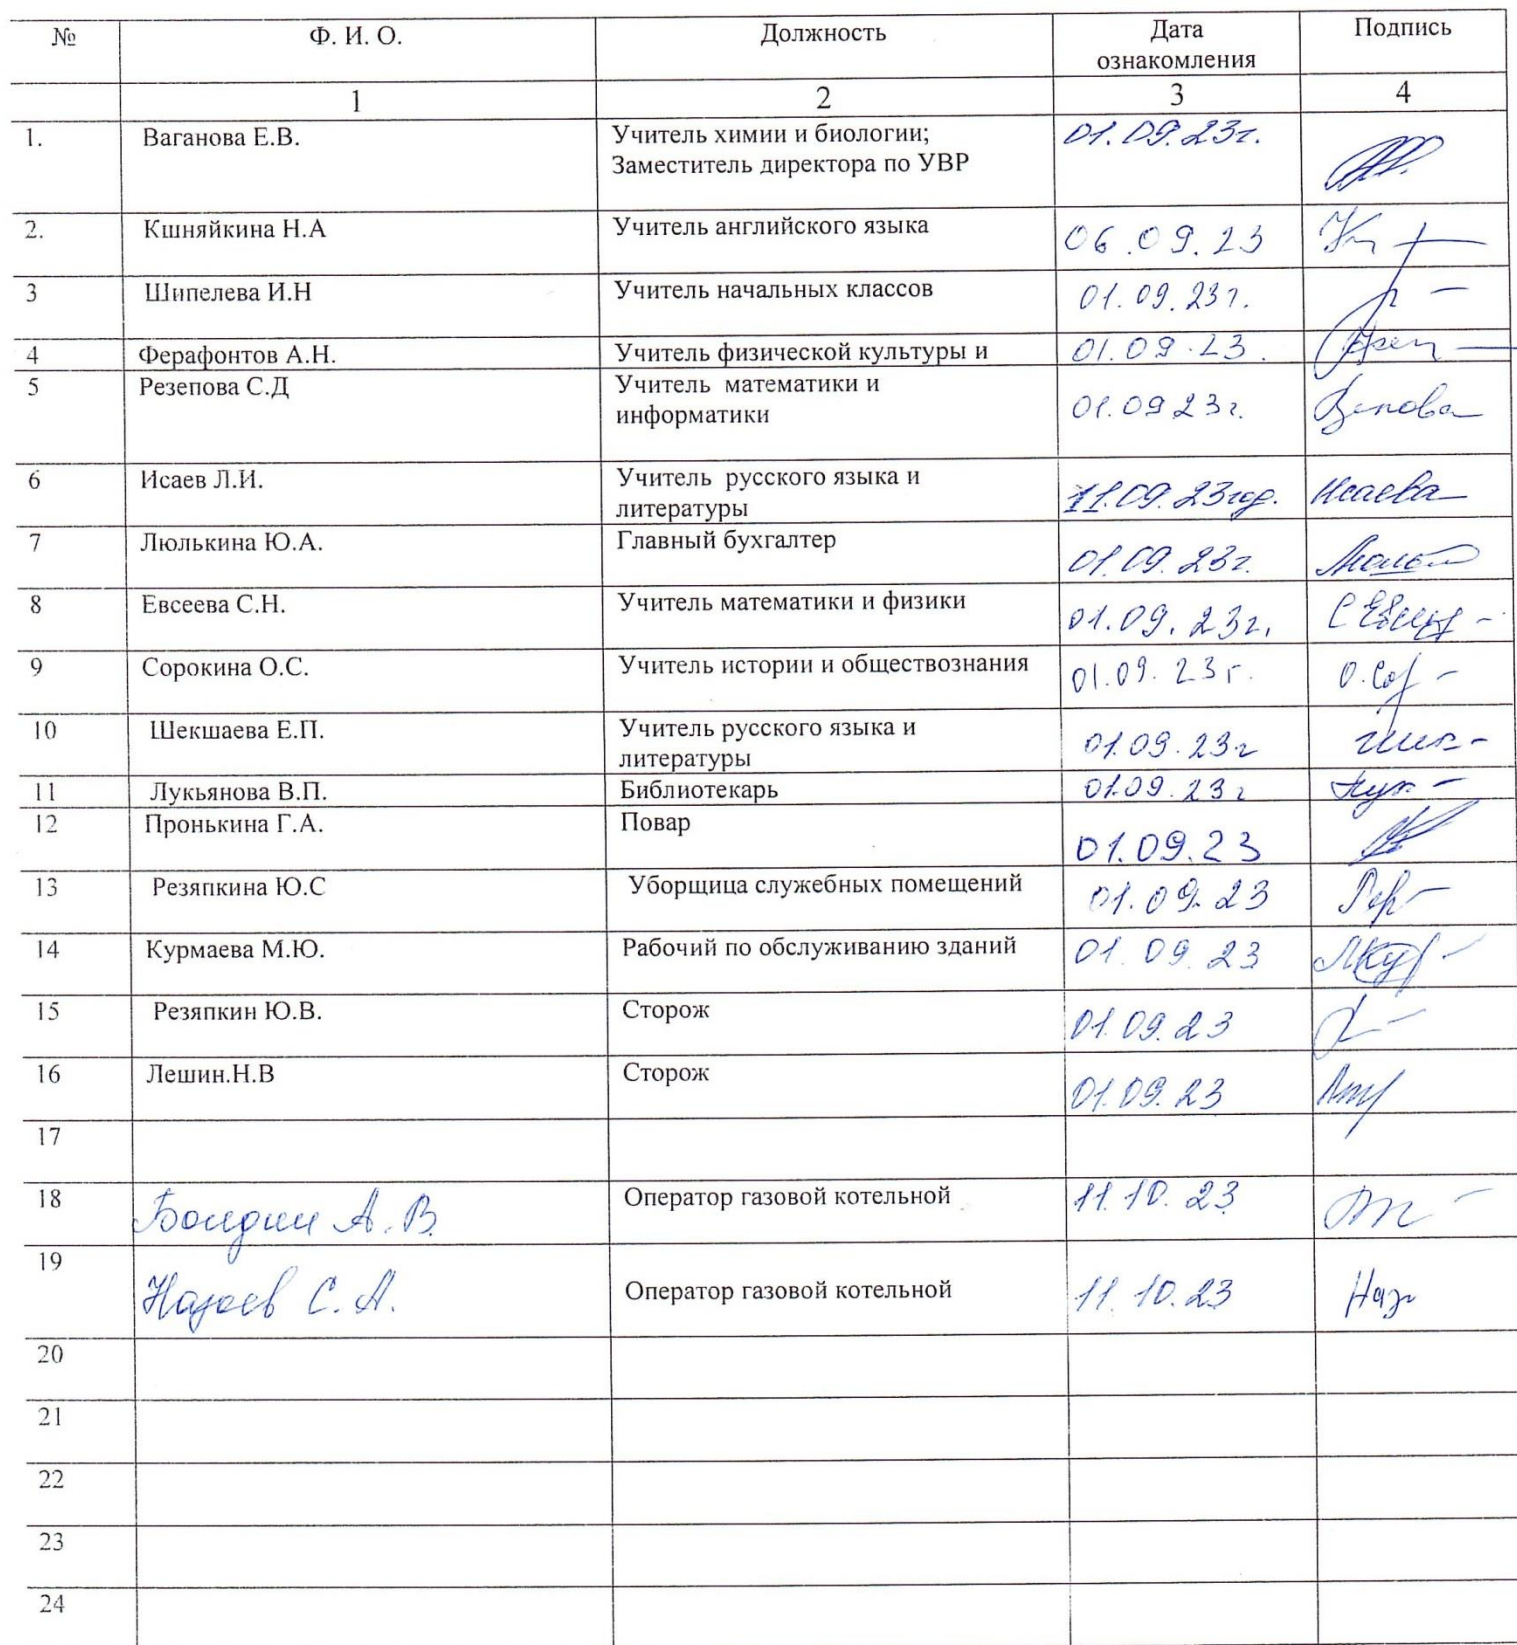 № Ф. И. О. Должность Дата Подпись
ознакомления
1 2 3 4
1. Ваганова Е.В. Учитель химии и биологии; 01.09.23г.
Заместитель директора по УВР
2. Кшняйкина Н.А Учитель английского языка 06.09.23
3 Шипелева И.Н Учитель начальных классов 01.09.23г.
4 Ферафонтов А.Н. Учитель физической культуры и 01.09.23.
5 Резепова С.Д Учитель математики и
информатики 01.09 23г.
6 Исаев Л.И. Учитель русского языка и
литературы 11.09.23год. Исаева
7 Люлькина Ю.А. Главный бухгалтер 01.09.23г.
8 Евсеева С.Н. Учитель математики и физики 01.09.23г.
9 Сорокина О.С. Учитель истории и обществознания 01.09.23г. О.Сор
10 Шекшаева Е.П. Учитель русского языка и
литературы 01.09.23г
11 Лукьянова В.П. Библиотекарь 01.09.23г Лук
12 Пронькина Г.А. Повар 01.09.23
13 Резяпкина Ю.С Уборщица служебных помещений 01.09.23
14 Курмаева М.Ю. Рабочий по обслуживанию зданий 01.09.23 МКур
15 Резяпкин Ю.В. Сторож 01.09.23
16 Лешин.Н.В Сторож 01.09.23
17
18 Болдин А.В. Оператор газовой котельной 11.10.23
19 Назаев С.А. Оператор газовой котельной 11.10.23 Наз
20
21
22
23
24